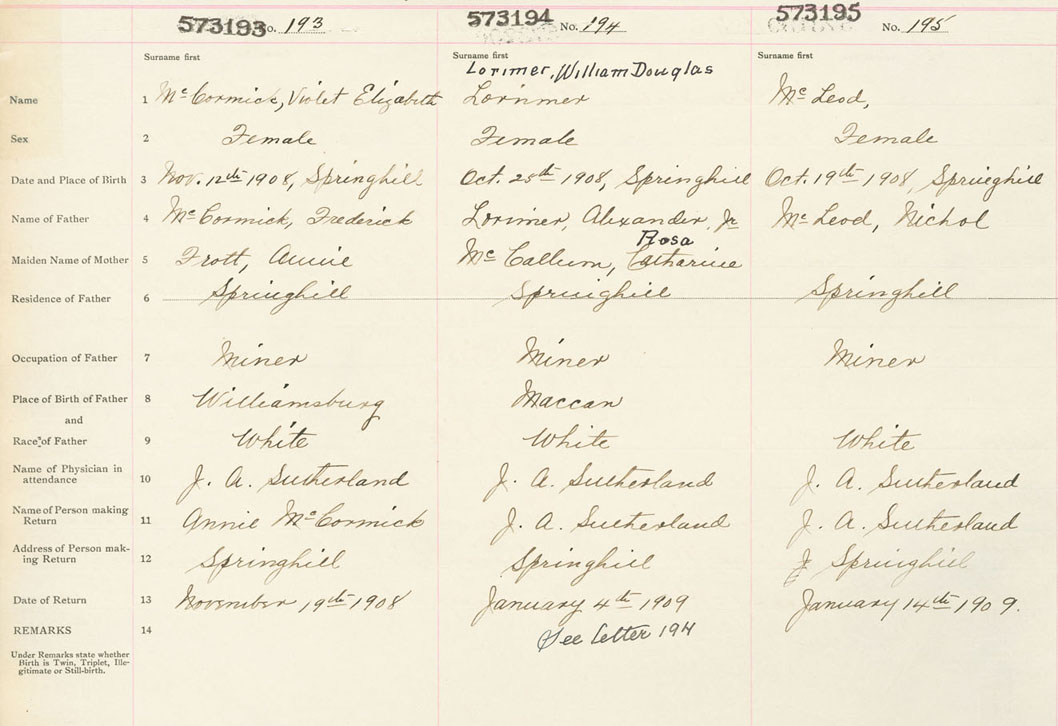 573193 No. 193 573194 No. 194 573195 No. 195
Surname first Surname first Surname first
Lorimer, William Douglas
Name 1 McCormick, Violet Elizabeth Lorimer McLeod,
Sex 2 Female Female Female
Date and Place of Birth 3 Nov. 12th 1908, Springhill Oct. 28th 1908, Springhill Oct. 19th 1908, Springhill
Name of Father 4 McCormick, Frederick Lorimer, Alexander, Jr McLeod, Nichol
Rosa
Maiden Name of Mother 5 Trott, Annie McCallum, Catharine
Residence of Father 6 Springhill Springhill Springhill
Occupation of Father 7 Miner Miner Miner
Place of Birth of Father 8 Williamsburg Maccan
and
Race of Father 9 White White White
Name of Physician in
attendance 10 J. A. Sutherland J. A. Sutherland J. A. Sutherland
Name of Person making
Return 11 Annie McCormick J. A. Sutherland J. A. Sutherland
Address of Person mak-
ing Return 12 Springhill Springhill Springhill
Date of Return 13 November 19th 1908 January 4th 1909 January 14th 1909.
REMARKS 14 See letter 194
Under Remarks state whether
Birth is Twin, Triplet, Ille-
gitimate or Still-birth.